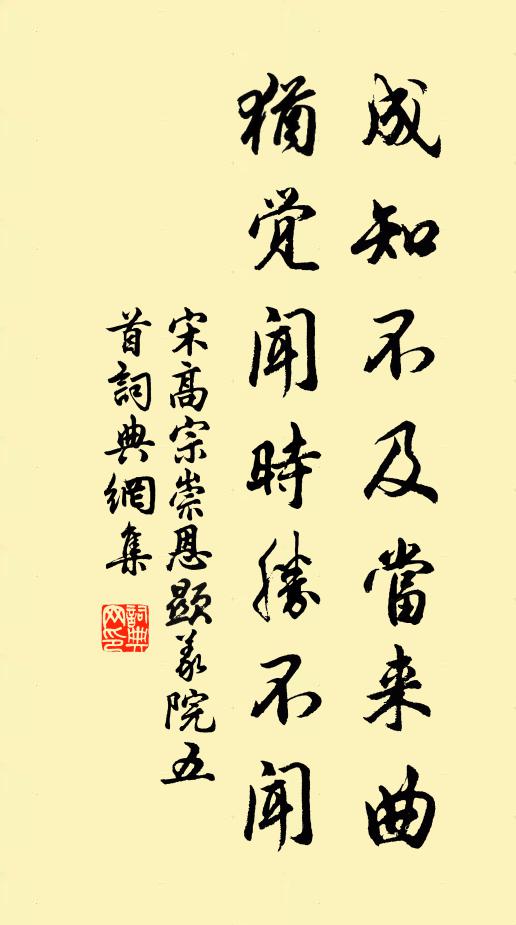 成知不及當来曲
猶覚聞時勝不聞
宋高宗崇恩顯義院五
首詞典網集
詞典网印